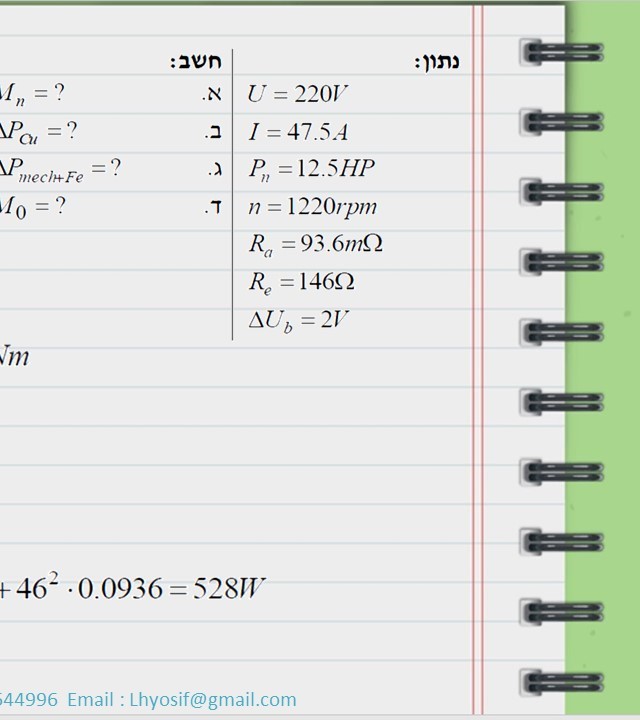 נתון:
U = 220V
I = 47.5A
Pn = 12.5HP
n = 1220rpm
Ra = 93.6mΩ
Re = 146Ω
ΔUb = 2V
חשב:
א. Mn = ?
ב. ΔPCu = ?
ג. ΔPmech+Fe = ?
ד. M0 = ?
Nm
+ 46² · 0.0936 = 528W
544996 Email : Lhyosif@gmail.com